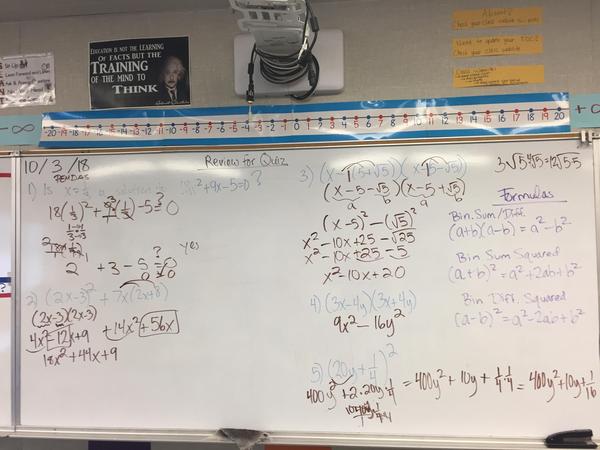 EDUCATION IS NOT THE LEARNING
OF FACTS BUT THE
TRAINING
OF THE MIND TO
THINK
Absent?
Check your class website
Need to update your TOC?
Check your class website
-∞
-20 -19 -18 -17 -16 -15 -14 -13 -12 -11 -10 -9 -8 -7 -6 -5 -4 -3 -2 -1 0 1 2 3 4 5 6 7 8 9 10 11 12 13 14 15 16 17 18 19 20
+
10/3/18
PEMDAS
Review for Quiz
1) Is x=1/3 a solution to 18x²+9x-5=0?
18(1/3)²+9(1/3)-5=0
2+3-5=0
0=0
yes
2) (2x-3)²+7x(2x+8)
(2x-3)(2x-3)
4x²-12x+9 +14x²+56x
18x²+44x+9
3) (x-(5+√5))(x-(5-√5))
(x-5-√5)(x-5+√5)
a b a b
(x-5)²-(√5)²
x²-10x+25-√25
x²-10x+25-5
x²-10x+20
4) (3x-4y)(3x+4y)
9x²-16y²
5) (20y+1/4)²
400y²+2·20y·1/4 =400y²+10y+1/4·1/4=400y²+10y+1/16
Formulas
Bin. Sum/Diff.
(a+b)(a-b)=a²-b²
Bin Sum Squared
(a+b)²=a²+2ab+b²
Bin Diff. Squared
(a-b)²=a²-2ab+b²